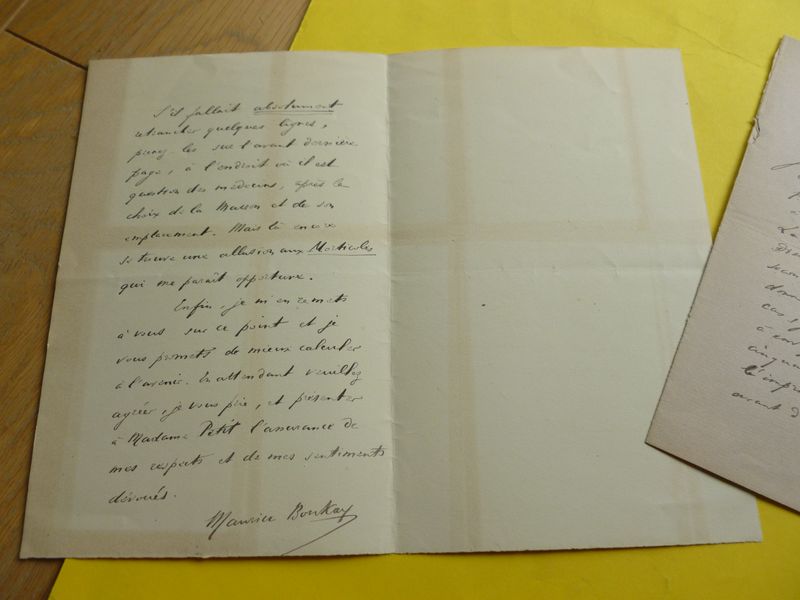 S'il fallait absolument
retrancher quelques lignes,
prenez-les sur l'avant dernière
page, à l'endroit où il est
question des médecins, après le
choix de la Maison et de son
emplacement. Mais là encore
se trouve une allusion aux Morticoles
qui me paraît opportune.
Enfin, je m'en remets
à vous sur ce point et je
vous promets de mieux calculer
à l'avenir. En attendant veuillez
agréer, je vous prie, et présenter
à Madame Petit l'assurance de
mes respects et de mes sentiments
dévoués.
Maurice Boukay
cas,
avant d